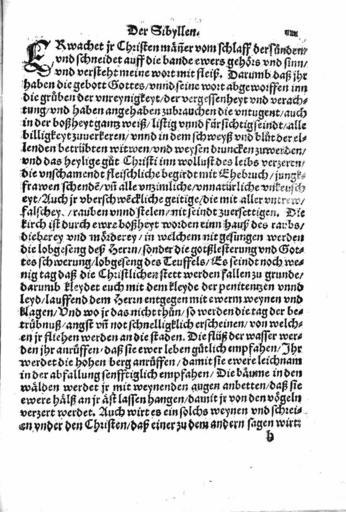 Der Sibyllen.
ERwachet jr Christen mäñer vom schlaff der sünden/
vnd schneidet auff die bande ewers gehörs vnd sinn/
vnd versteht meine wort mit fleiß. Darumb daß jhr
haben die gebott Gottes/ vnnd seine wort abgeworffen inn
die grüben der vnreynigkeyt/ der vergessenheyt vnd verach-
tung/ vnd haben angehaben zubrauchen die vntugent/ auch
in der boßheyt gantz weiß/ listig vnnd fürsichtig seindt/ alle
billigkeyt zuuerkeren/ vnnd in dem schweyß vnd blüt der el-
lenden betrübten witwen/ vnd weysen druncken zuwerden/
vnd das heylige güt Christi inn wollust des leibs verzern/
die vnschamende fleischliche begirdt mit Ehebuch/ jungk-
frawen schendē/ vñ alle vnzimliche/ vnnatürliche vnkeusch
eyt/ Auch jr vberschweckliche geitige/ die mit aller vntrew/
falschey. / rauben vnnd stelen/ nit seindt zuersettigen. Die
kirch ist durch ewre boßheyt worden einn hauß des raubs/
dieberey vnd mörderey/ in welchem nit gesungen werden
die lobgeseng deß Herrn/ sonder die gotßlesterung vnd Got-
tes schwerung/ lobgeseng des Teuffels/ Es seindt noch we-
nig tag daß die Christlichen stett werden fallen zu grunde/
darumb kleydet euch mit dem kleyde der penitentzen vnnd
leyd/ lauffend dem Herrn entgegen mit ewerm weynen vnd
klagen/ Vnd wo jr das nicht thün/ so werden die tag der be-
trübnuß/ angst vñ not schnelligklich erscheinen/ von welch-
en jr fliehen werden an die staden. Die flüß der wasser wer-
den jhr anrüffen/ daß sie ewer leben gütlich empfahen/ Jhr
werdet die hohen berg anrüffen/ damit sie ewere leichnam
in der abfallung senfftiglich empfahen/ Die bäume in den
wälden werdet jr mit weynenden augen anbetten/ daß sie
ewere hälß an jr äst lassen hangen/ damit jr von den vögeln
verzert werdet. Auch wirt es ein solchs weynen vnd schrei-
en vnder den Christen/ daß einer zu dem andern sagen wirt:
b